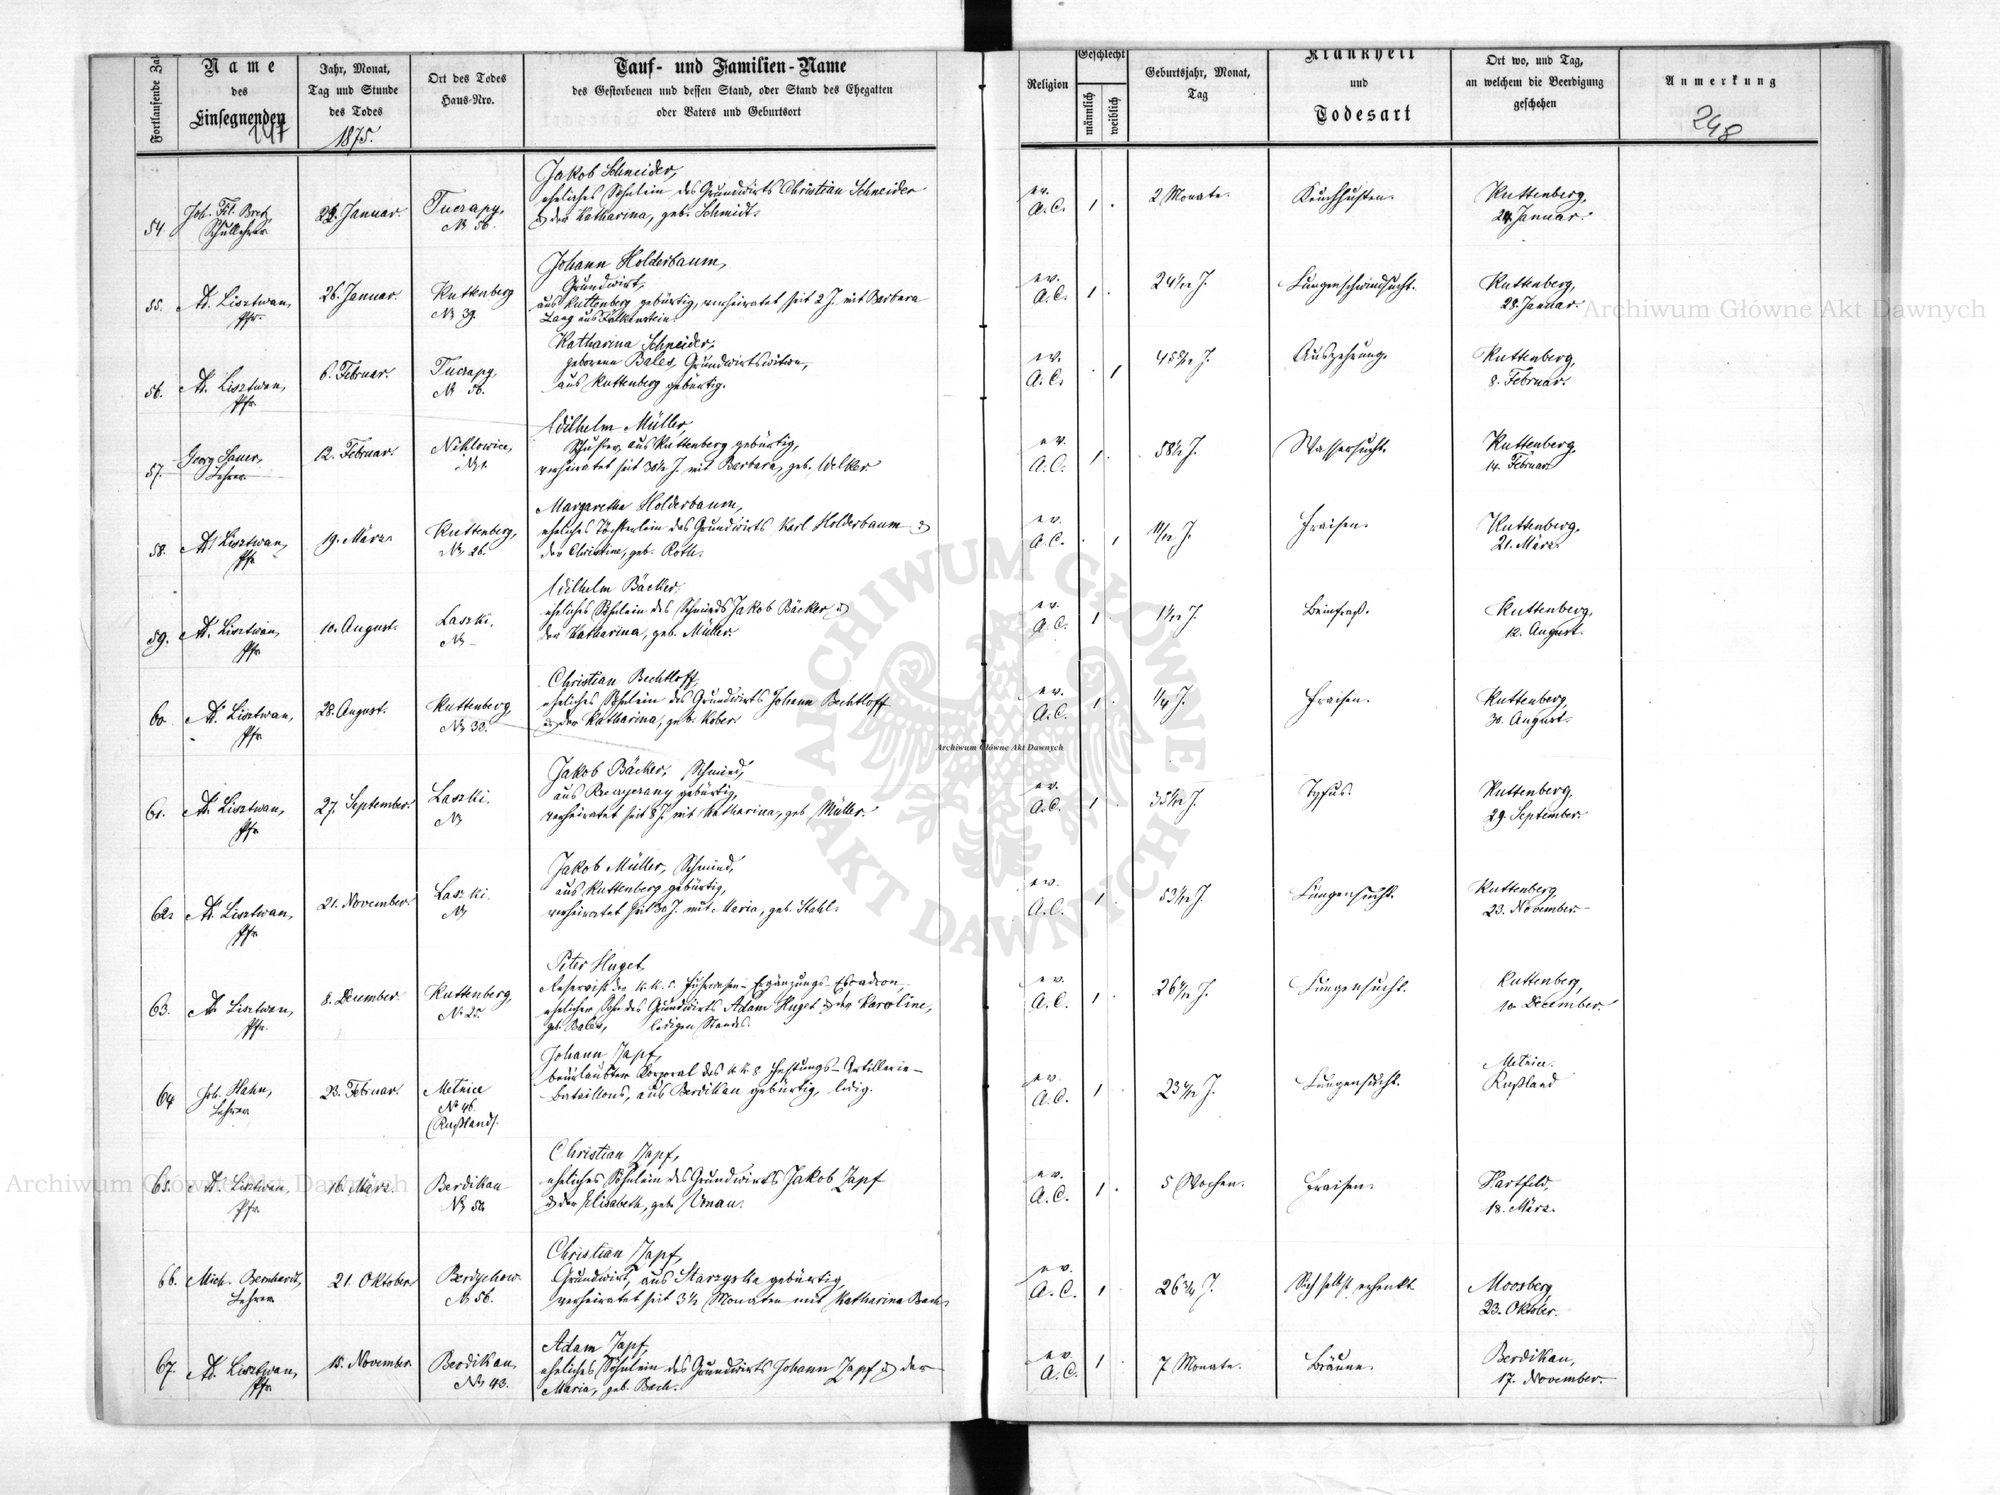 Fortlaufende Zahl
Name
des
Einsegnenden
247
Jahr, Monat,
Tag und Stunde
des Todes
1875.
Ort des Todes
Haus-Nro.
Tauf- und Familien-Name
des Gestorbenen und dessen Stand, oder Stand des Ehegatten
oder Vaters und Geburtsort
Religion
Geschlecht
männlich
weiblich
Geburtsjahr, Monat,
Tag
Krankheit
und
Todesart
Ort wo, und Tag,
an welchem die Beerdigung
geschehen
Anmerkung
248
54.
Joh. Fil. Bretz,
Schullehrer
22. Januar.
Tucrapy,
No 56.
Jakob Schneider,
eheliches Söhnlein des Grundwirts Christian Schneider
u. der Katharina, geb. Schmidt.
ev.
A.C.
1
2 Monate.
Keuchhusten.
Kuttenberg,
24. Januar.
55.
A. Lisztwan,
Pfr.
26. Januar.
Kuttenberg
No 39.
Johann Holderbaum,
Grundwirt,
aus Kuttenberg gebürtig, verheiratet seit 2 J. mit Barbara
Lang aus Falkenstein.
ev.
A.C.
1
Lungenschwindsucht.
Kuttenberg,
28. Januar.
56.
A. Lisztwan,
Pfr.
6. Februar.
Tucrapy,
No 56.
Katharina Schneider,
geborene Bales, Grundwirtswitwe,
aus Kuttenberg gebürtig.
ev.
A.C.
1
Auszehrung.
Kuttenberg,
8. Februar.
57.
Georg Sauer,
Lehrer
12. Februar.
Niklowice,
No 1.
Wilhelm Müller,
Schuster, aus Kuttenberg gebürtig,
verheiratet seit 30½ J. mit Barbara, geb. Welker
ev.
A.C.
1
58½ J.
Wassersucht.
Kuttenberg,
14. Februar
58.
A. Lisztwan,
Pfr.
19. März
Kuttenberg,
No 26.
Margaretha Holderbaum,
eheliches Töchterlein des Grundwirts Karl Holderbaum u.
der Christine, geb. Roth.
ev.
A.C.
1
11/12 J.
Fraisen.
Kuttenberg,
21. März.
59.
A. Lisztwan,
Pfr.
10. August.
Laszki.
No –
Wilhelm Bäcker,
eheliches Söhnlein des Schmieds Jakob Bäcker u.
der Katharina, geb. Müller.
ev.
A.C.
1
Beinfraß.
Kuttenberg,
12. August.
60.
A. Lisztwan,
Pfr.
28. August.
Kuttenberg,
No 33.
Christian Bechtloff,
eheliches Söhnlein des Grundwirts Johann Bechtloff
u. der Katharina, geb. Kober.
ev.
A.C.
1
¼ J.
Fraisen.
Kuttenberg,
30. August.
61.
A. Lisztwan,
Pfr.
27. September.
Laszki.
No
Jakob Bäcker, Schmied,
gebürtig,
verheiratet seit 8 J. mit Katharina, geb. Müller.
ev.
A.C.
1
Typus.
Kuttenberg,
29. September.
62.
A. Lisztwan,
Pfr.
21. November.
Laszki.
No
Jakob Müller, Schmied,
aus Kuttenberg gebürtig,
verheiratet seit 30 J. mit Maria, geb. Stahl.
ev.
A.C.
1
Lungensucht.
Kuttenberg
23. November.
63.
A. Lisztwan,
Pfr.
8. December.
Kuttenberg,
No 25.
Peter Huget,
Reservist der k.k. Fuhrwesen-Ergänzungs-Escadron,
ehelicher Sohn des Grundwirts Adam Huget u. der Karoline,
geb. Bales, ledigen Standes.
ev.
A.C.
1
Lungensucht.
Kuttenberg,
10. December.
64
Joh. Hahn,
Lehrer
23. Februar.
Metnice
No 46.
(Rußland).
Johann Zapf,
beurlaubter Korporal des k.k. 8 Festungs-Artillerie-
bataillons, aus Berdikau gebürtig, ledig.
ev.
A.C.
1
Lungensucht.
Metnice.
Rußland
65.
A. Lisztwan,
Pfr.
16. März.
Berdikau
Christian Zapf,
eheliches Söhnlein des Grundwirts Jakob Zapf
u. der Elisabeth, geb. Unau.
ev.
A.C.
1
5 Wochen.
Fraisen.
Hartfeld,
18. März.
66.
Mich. Bernhardt,
Lehrer
21. Oktober
Berdychow.
No 56.
Christian Zapf,
Grundwirt, aus Starzyska gebürtig,
verheiratet seit 3½ Monaten mit Katharina Bach.
ev.
A.C.
1
26¾ J.
Sich selbst erhenkt.
Moosberg
23. Oktober.
67.
A. Lisztwan,
Pfr.
15. November.
Berdikau,
No 43.
Adam Zapf,
eheliches Söhnlein des Grundwirts Johann Zapf u. der
Maria, geb. Bach.
ev.
A.C.
1
7 Monate.
Bräune.
Berdikau,
17. November.
Archiwum Główne Akt Dawnych
Archiwum Główne Akt Dawnych
Archiwum Główne Akt Dawnych
ARCHIWUM GŁÓWNE
AKT DAWNYCH